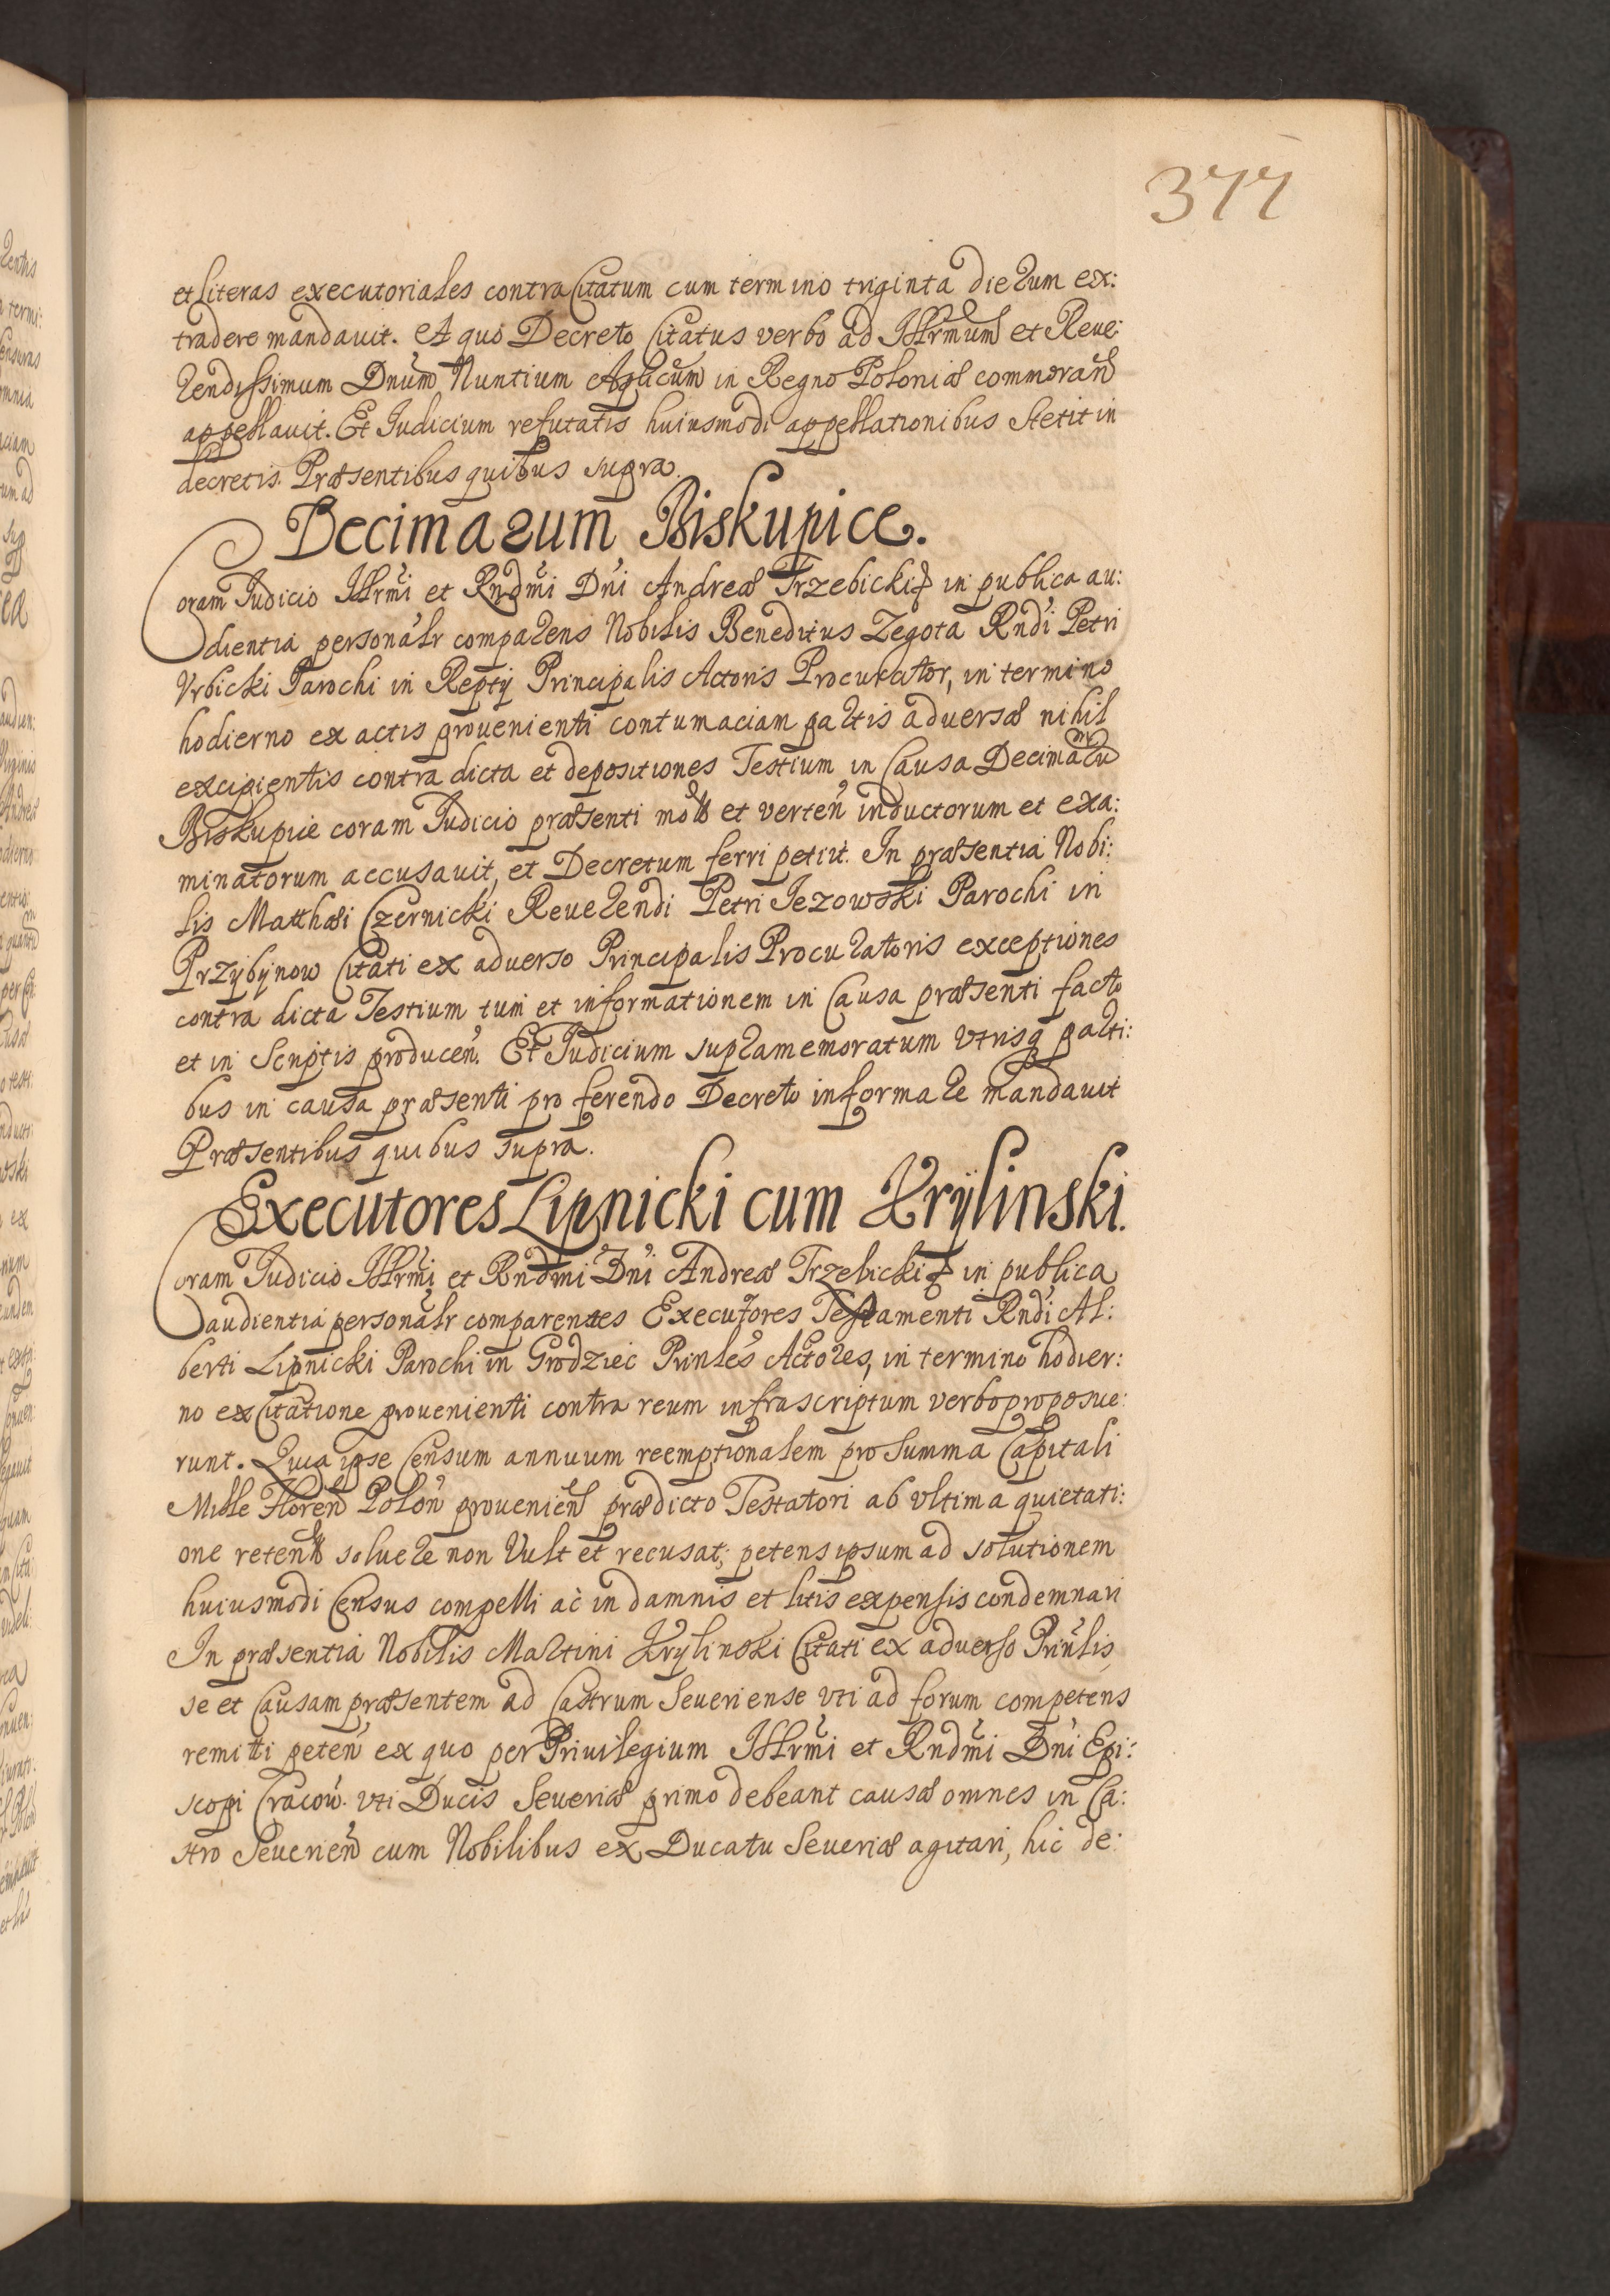 377
et literas executoriales contra Citatum cum termino triginta dierum ex:
tradere mandauit. A quo Decreto Citatus verbo ad Illrmum et Reue:
rendissimum Dnum Nuntium Aplicum in Regno Poloniæ commoran
appellauit. Et Judicium refutatis huiusmodi appellationibus stetit in
decretis. Præsentibus quibus supra.
Decimarum Biskupice.
Coram Judicio Illrmi et Rndmi Dni Andreæ Trzebicki in publica au:
dientia personalr comparens Nobilis Beneditus Zegota Rndi Petri
Vrbicki Parochi in Repty Principalis Actoris Procurator, in termino
hodierno ex actis prouenienti contumaciam partis aduersæ nihil
excipientis contra dicta et depositiones Testium in Causa Decimarum
Biskupie coram Judicio præsenti mot et verten inductorum et exa:
minatorum accusauit, et Decretum ferri petiit. In præsentia Nobi:
lis Matthæi Czernicki Reuerendi Petri Jezowski Parochi in
Przybynow Citati ex aduerso Principalis Procuratoris exceptiones
contra dicta Testium tum et informationem in Causa præsenti facto
et in Scriptis producen. Et Judicium supramemoratum vtrisq parti:
bus in causa præsenti pro ferendo Decreto informare mandauit
Præsentibus quibus supra.
Executores Lipnicki cum Krÿlinski.
Coram Judicio Illrmi et Rndmi Dni Andreæ Trzebicki in publica
audientia personalr comparentes Executores Testamenti Rndi Al:
berti Lipnicki Parochi in Grodziec Prinles Actores, in termino hodier:
no ex Citatione prouenienti contra reum infrascriptum verbo proposue:
runt. Quia ipse Censum annuum reemptionalem pro Summa Capitali
Mille Floren Polon prouenien prædicto Testatori ab vltima quietati:
one retent soluere non Vult et recusat; petens ipsum ad solutionem
huiusmodi Census compelli ac in damnis et litis expensis condemnari
In præsentia Nobilis Martini Krylinski Citati ex aduerso Prinlis,
se et Causam præsentem ad Castrum Seueriense vti ad forum competens
remitti peten ex quo per Priuilegium Illrmi et Rndmi Dni Epi:
scopi Cracou. vti Ducis Seueriæ primo debeant causæ omnes in Ca:
stro Seuerien cum Nobilibus ex Ducatu Seueriæ agitari, hic de: